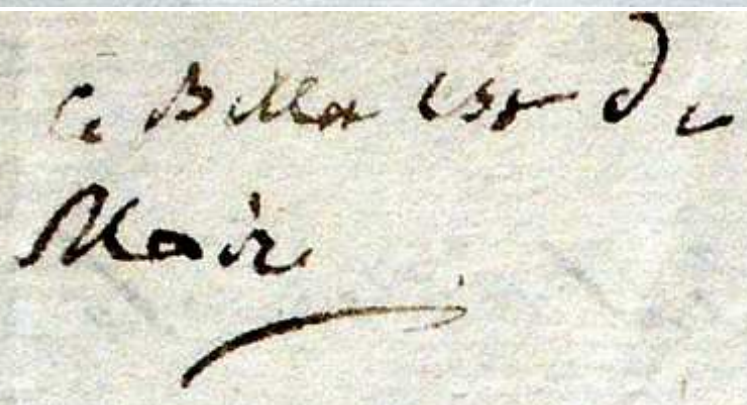 Ce Billet est de
Maire